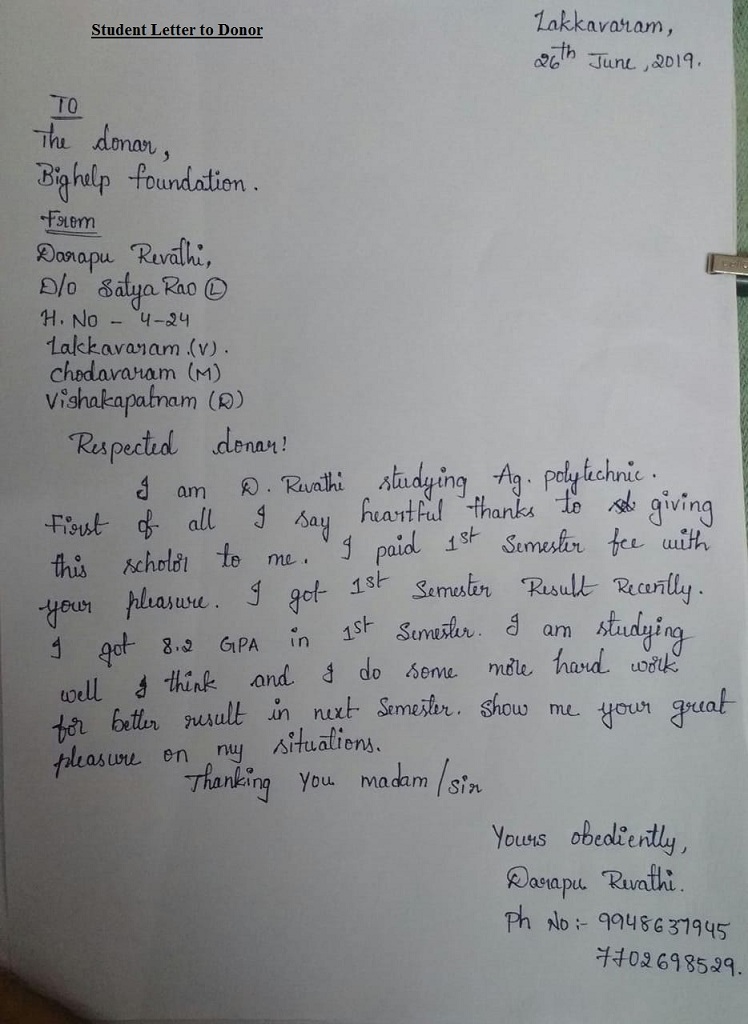 Student Letter to Donor
Lakkavaram,
26th June, 2019.
TO
The donar,
Bighelp foundation.
From
Darapu Revathi,
D/o Satya Rao (L)
H. No - 4-24
Lakkavaram.(V).
chodavaram (M)
Vishakapatnam (D)
Respected donar!
I am D. Revathi studying Ag. polytechnic.
First of all I say heartful thanks to giving
this scholor to me. I paid 1st Semester fee with
your pleasure. I got 1st Semester Result Recently.
I got 8.2 GPA in 1st Semester. I am studying
well I think and I do some more hard work
for better result in next Semester. Show me your great
pleasure on my situations.
Thanking you madam/sir
Yours obediently,
Darapu Revathi.
Ph No:- 9948637945
7702698529.